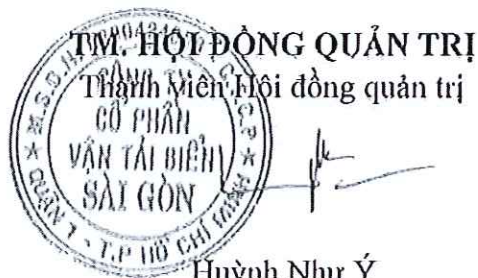 TM. HỘI ĐỒNG QUẢN TRỊ
Thành viên Hội đồng quản trị
CÔNG TY
CỔ PHẦN
VẬN TẢI BIỂN
SÀI GÒN
QUẬN 1 - T.P HỒ CHÍ MINH
Huỳnh Như Ý